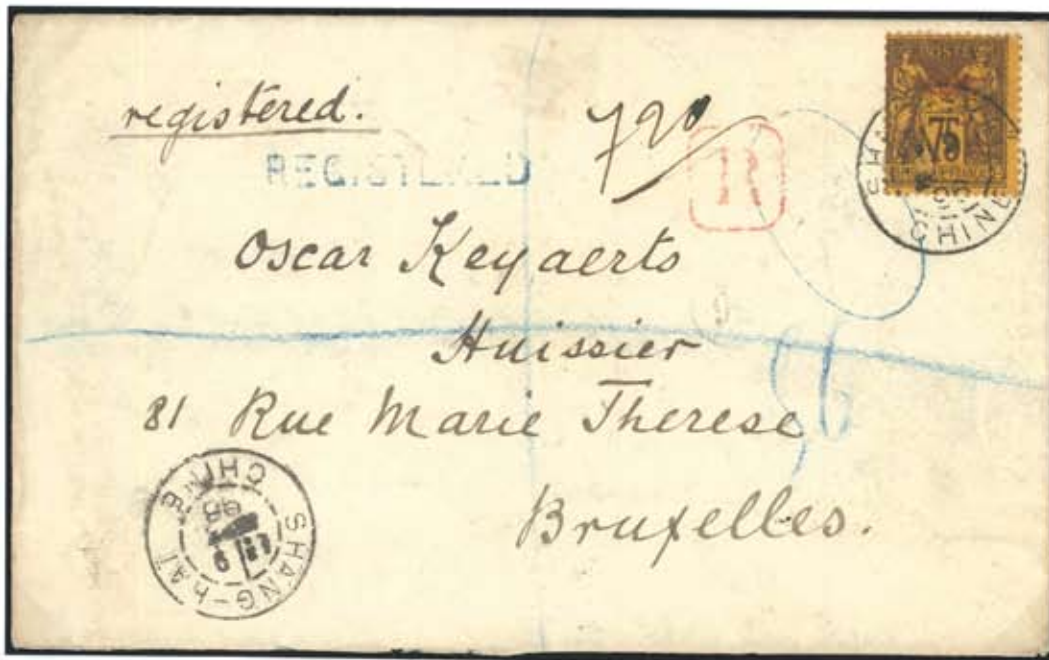 POSTE
registered.
REGISTERED
R
75
CHINE
Oscar Keyaerts
Huissier
81 Rue Marie Therese
Bruxelles.
SHANG-HAI
CHINE